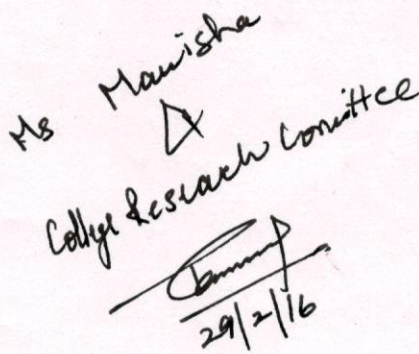 Ms Manisha
&
College Research Comittee
29/2/16